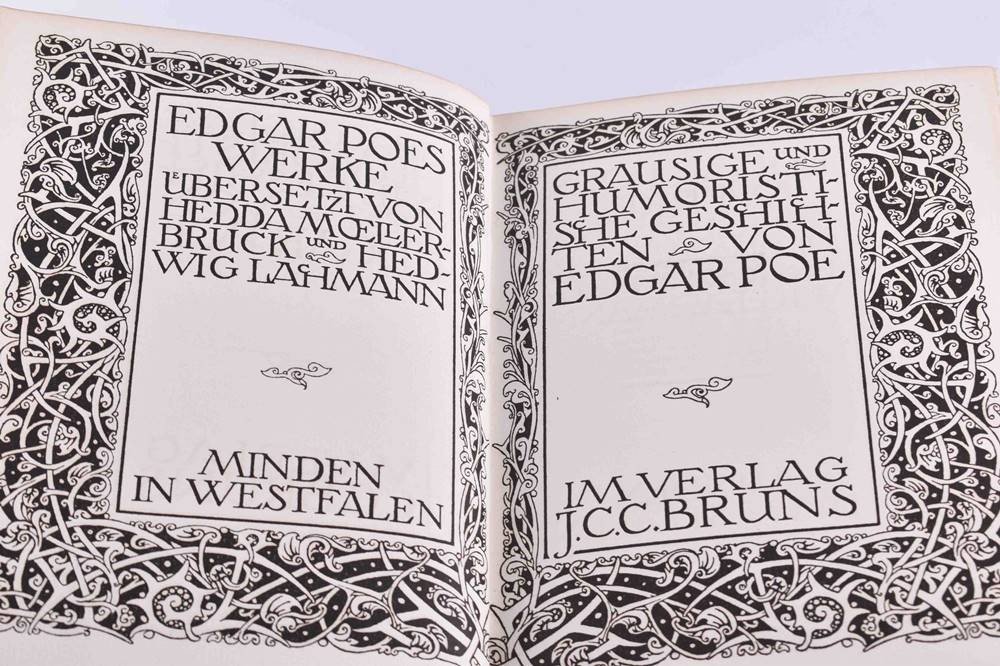 EDGAR POES
WERKE
UEBERSETZT VON
HEDDA MOELLER-
BRUCK UND HED-
WIG LACHMANN
MINDEN
IN WESTFALEN
GRAUSIGE UND
HUMORISTI-
SCHE GESCHICH-
TEN VON
EDGAR POE
IM VERLAG
J.C.C.BRUNS